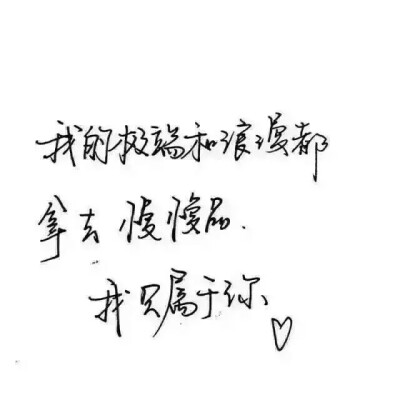 我的极端和浪漫都
拿去慢慢品.
我只属于你